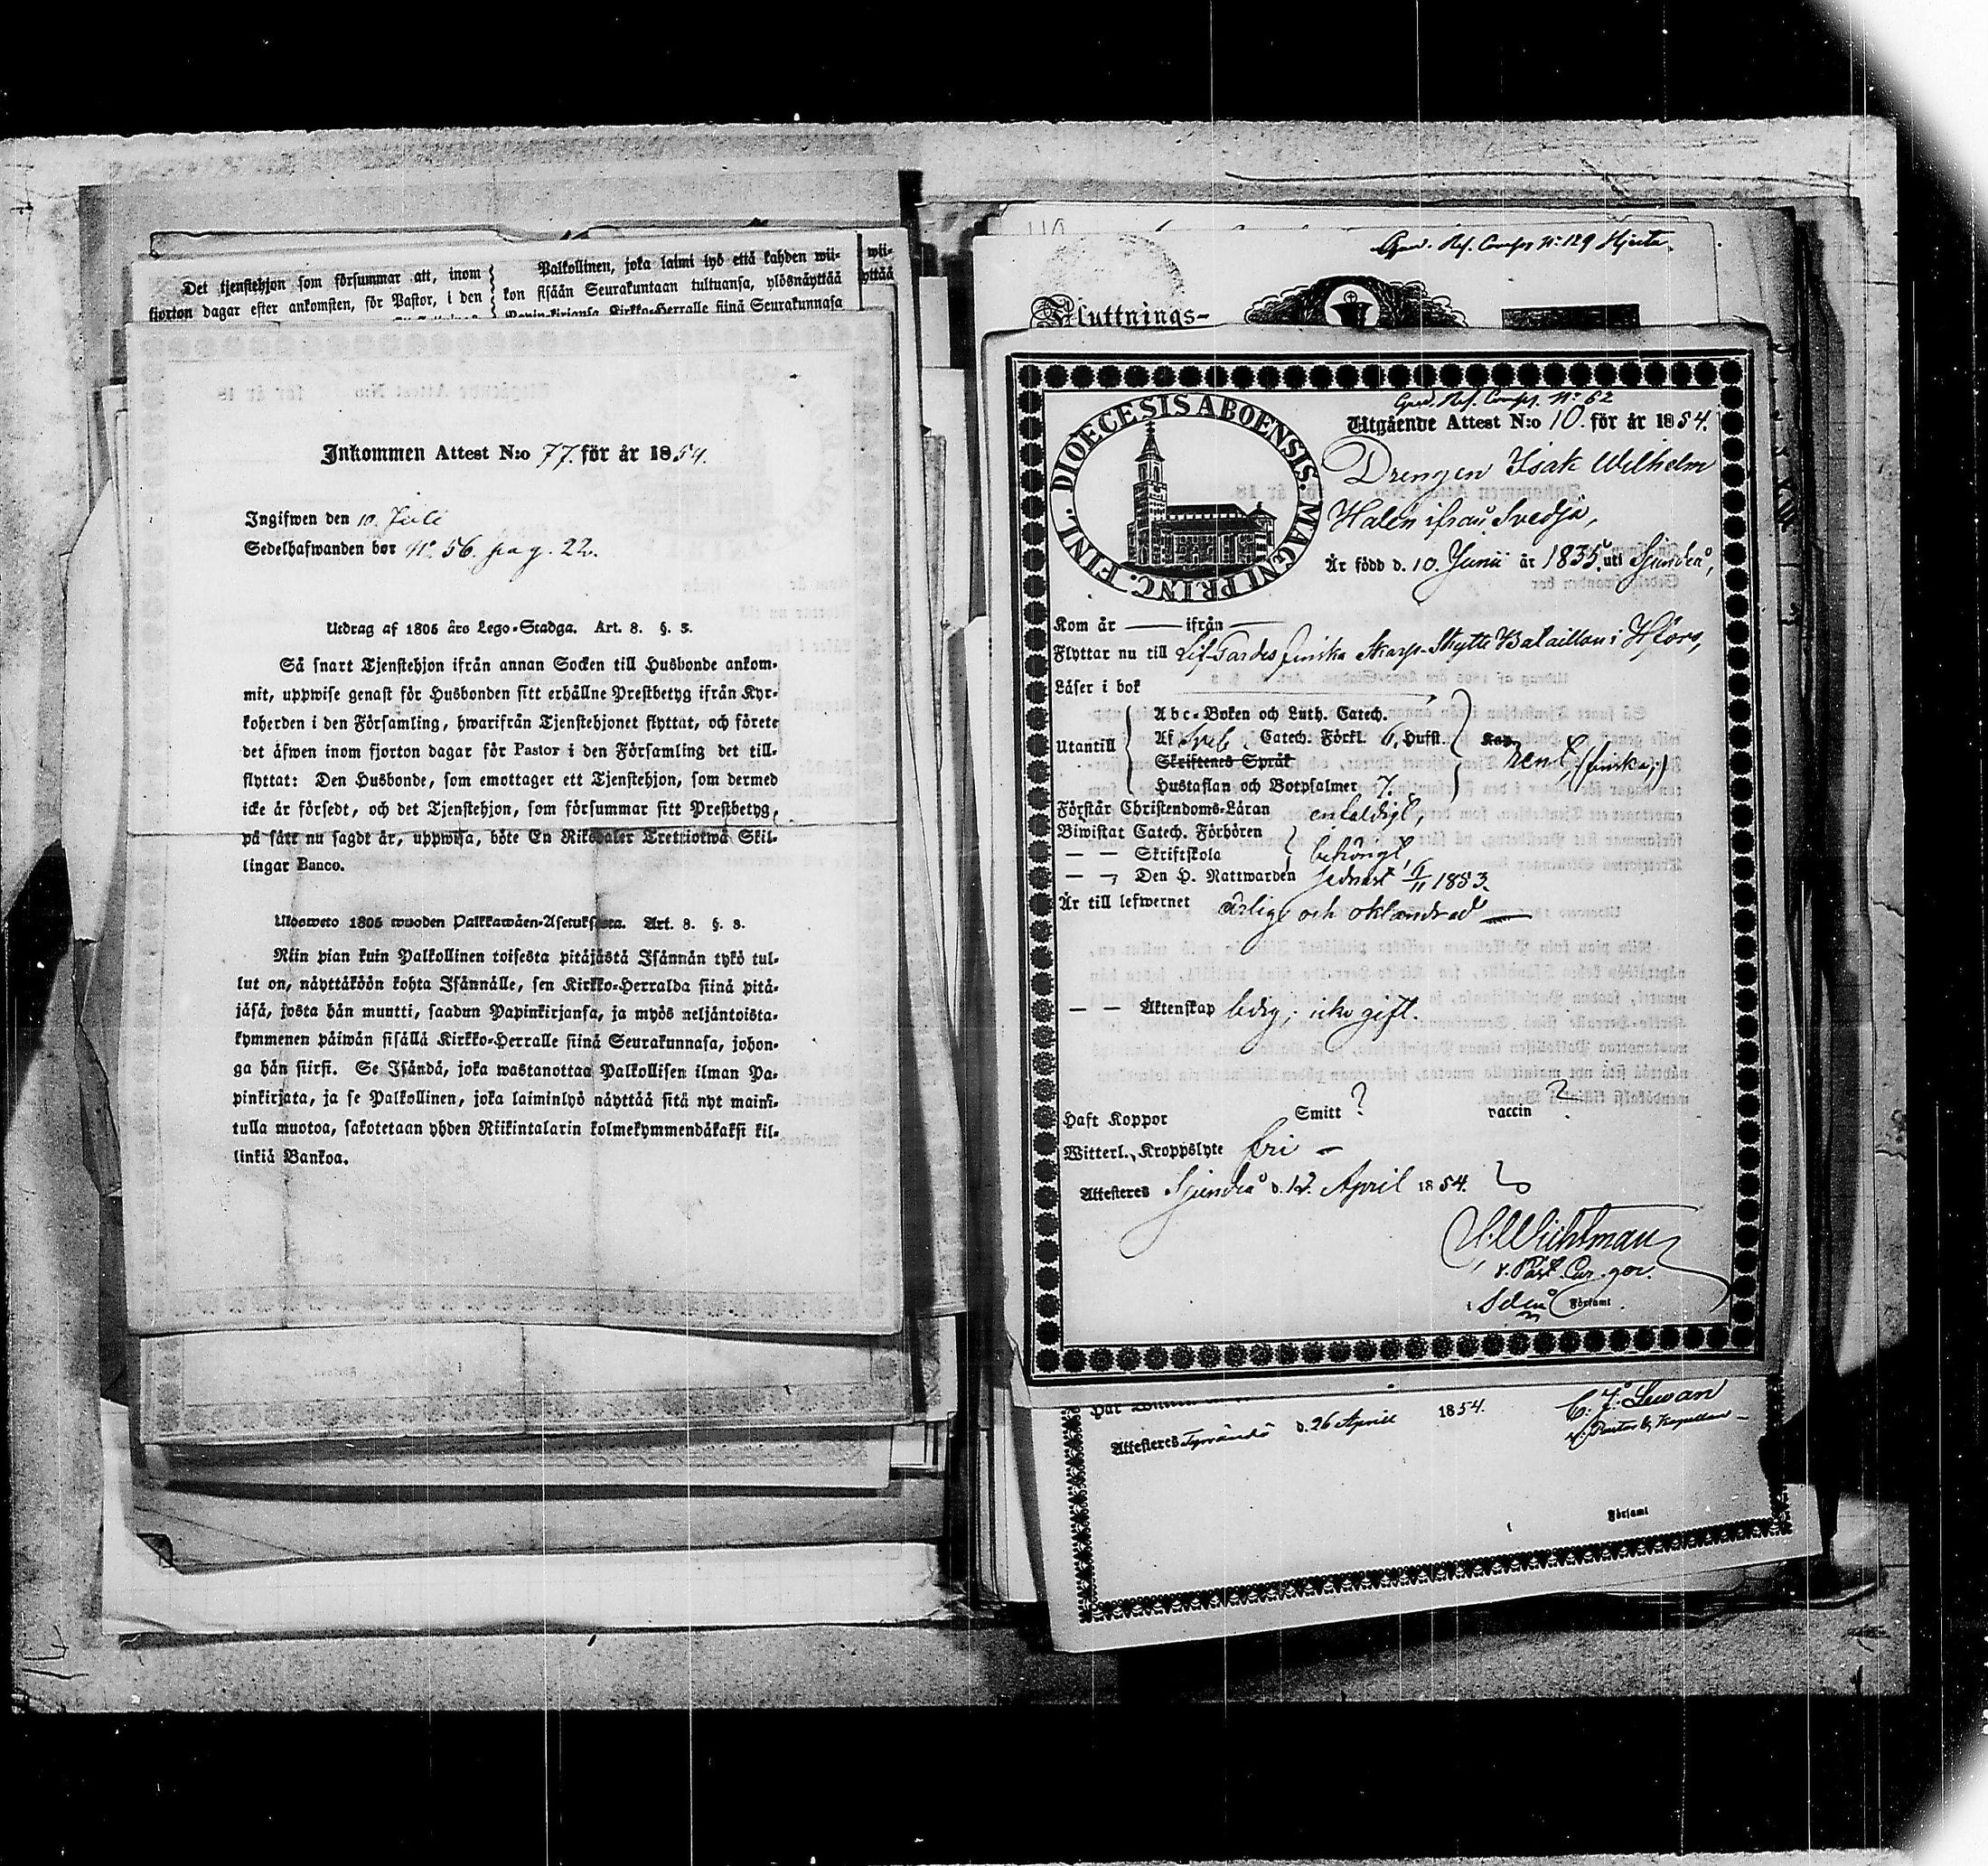 Det tjenstehjon som försummar att, inom
fjorton dagar efter ankomsten, för Pastor, i den
Palkollinen, joka laimi lyö että kahden wii-
kon sisään Seurakuntaan tultuansa, ylösnäyttää
Papinkirjansa Kirkko-Herralle siinä Seurakunnasa
wii-
yttää
Inkommen Attest N:o 77. för år 1854.
Ingifwen den 10. Juli
Sedelhafwanden bor No. 56. pag. 22.
Utdrag af 1805 års Lego-Stadga. Art. 8. §. 3.
Så snart Tjenstehjon ifrån annan Socken till Husbonde ankom-
mit, uppwise genast för Husbonden sitt erhållne Prestbetyg ifrån Kyr-
koherden i den Församling, hwarifrån Tjenstehjonet flyttat, och förete
det äfwen inom fjorton dagar för Pastor i den Församling det till-
flyttat: Den Husbonde, som emottager ett Tjenstehjon, som dermed
icke är försedt, och det Tjenstehjon, som försummar sitt Prestbetyg,
på sätt nu sagdt är, uppwisa, böte En Riksdaler Trettiotwå Skil-
lingar Banco.
Ulosweto 1805 wuoden Palkkawäen-Asetuksesta. Art. 8. §. 3.
Niin pian kuin Palkollinen toisesta pitäjästä Isännän tykö tul-
lut on, näyttäköön kohta Isännälle, sen Kirkko-Herralda siinä pitä-
jäsä, josta hän muutti, saadun Papinkirjansa, ja myös neljäntoista-
kymmenen päiwän sisällä Kirkko-Herralle siinä Seurakunnasa, johon-
ga hän siirsi. Se Isändä, joka wastanottaa Palkollisen ilman Pa-
pinkirjata, ja se Palkollinen, joka laiminlyö näyttää sitä nyt maini-
tulla muotoa, sakotetaan yhden Riikintalarin kolmekymmendäkaksi kil-
linkiä Bankoa.
Gred. Ref. Comp. No 129 Hjerta.
Flyttnings-
Gred. Ref. Comp. No 62
DIOECESIS ABOENSIS. MAGNI PRINC. FINL.
Utgående Attest N:o 10. för år 1854.
Drengen Isak Wilhelm
Halen ifrån Svedja,
Är född d. 10. Junii år 1835. uti Sjundeå,
Kom år — ifrån —
Flyttar nu till Lif-Gardes finska Skarp-Skytte Bataillon i Hfors,
Läser i bok
Utantill
Abc-Boken och Luth. Catech.
Af Sveb. Catech. Förkl. 6, Hufst.
Skriftenes Språk
Hustaflan och Botpsalmer 7.
rent, (finska;)
Förstår Christendoms-Läran enfaldigt,
Biwistat Catech. Förhören
— — Skriftskola behörigt,
— — Den H. Nattwarden sednast 6/11 1853.
Är till lefwernet ärlig och oklandrad —
— — Äktenskap ledig; icke gift.
Haft Koppor Smitt ? vaccin ?
Witterl. Kroppslyte fri —
Attesteres Sjundeå d. 12. April 1854.
v. Past. Cur. ger.
i Sdeå Församl.
Attesteres Tyrvändö d. 26 April 1854.
C. J. Lewan
Församl